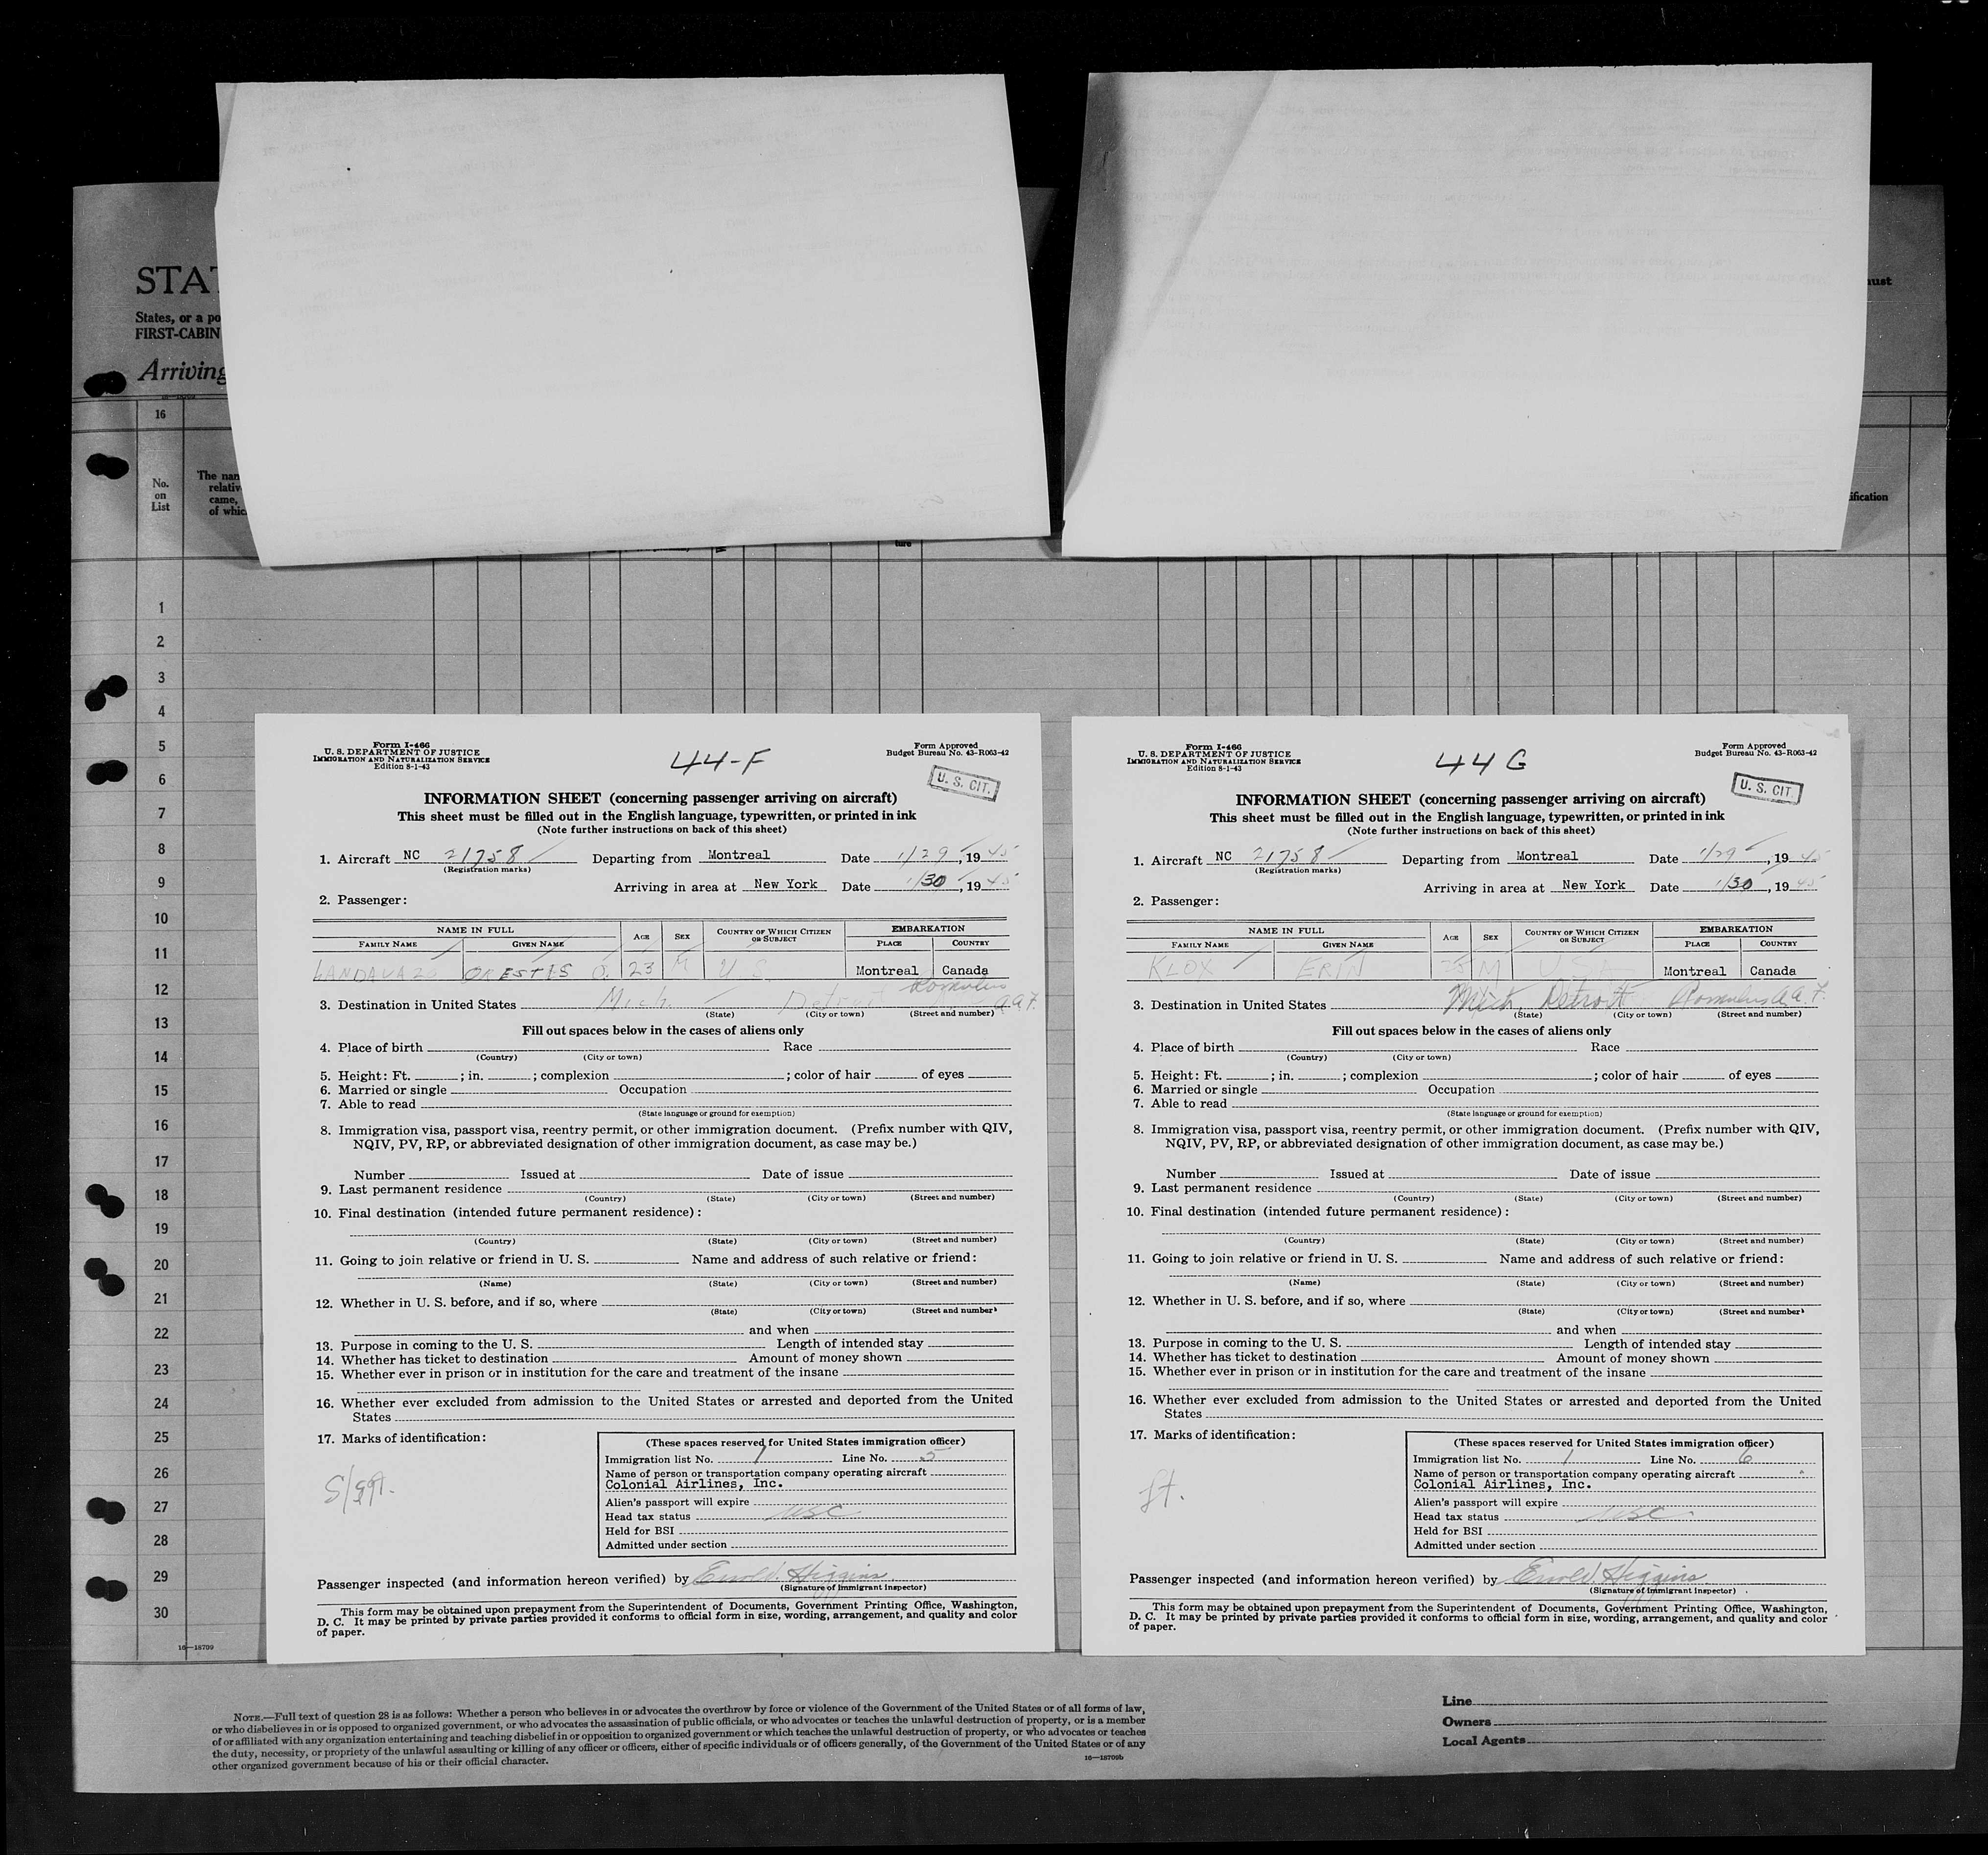 STAT
States, or a po
FIRST-CABIN
Arriving
16
No.
on
List
The nam
relativ
came,
of whic
must
ification
ture
1
2
3
4
5
6
7
8
9
10
11
12
13
14
15
16
17
18
19
20
21
22
23
24
25
26
27
28
29
30
16—18709
Form I-466
U. S. DEPARTMENT OF JUSTICE
IMMIGRATION AND NATURALIZATION SERVICE
Edition 8-1-43
44-F
Form Approved
Budget Bureau No. 43-R063-42
U. S. CIT.
INFORMATION SHEET (concerning passenger arriving on aircraft)
This sheet must be filled out in the English language, typewritten, or printed in ink
(Note further instructions on back of this sheet)
1. Aircraft NC 21758 Departing from Montreal Date 1/29, 1945
(Registration marks)
Arriving in area at New York Date 1/30, 1945
2. Passenger:
NAME IN FULL AGE SEX COUNTRY OF WHICH CITIZEN OR SUBJECT EMBARKATION
FAMILY NAME GIVEN NAME PLACE COUNTRY
LANDAVAZO ORESTIS O. 23 M U S Montreal Canada
3. Destination in United States Mich. Detroit Romulus A.A.F.
(State) (City or town) (Street and number)
Fill out spaces below in the cases of aliens only
4. Place of birth Race
(Country) (City or town)
5. Height: Ft. ; in. ; complexion ; color of hair of eyes
6. Married or single Occupation
7. Able to read
(State language or ground for exemption)
8. Immigration visa, passport visa, reentry permit, or other immigration document. (Prefix number with QIV,
NQIV, PV, RP, or abbreviated designation of other immigration document, as case may be.)
Number Issued at Date of issue
9. Last permanent residence
(Country) (State) (City or town) (Street and number)
10. Final destination (intended future permanent residence):
(Country) (State) (City or town) (Street and number)
11. Going to join relative or friend in U. S. Name and address of such relative or friend:
(Name) (State) (City or town) (Street and number)
12. Whether in U. S. before, and if so, where
(State) (City or town) (Street and number)
and when
13. Purpose in coming to the U. S. Length of intended stay
14. Whether has ticket to destination Amount of money shown
15. Whether ever in prison or in institution for the care and treatment of the insane
16. Whether ever excluded from admission to the United States or arrested and deported from the United
States
17. Marks of identification:
S/Sgt.
(These spaces reserved for United States immigration officer)
Immigration list No. 1 Line No. 5
Name of person or transportation company operating aircraft
Colonial Airlines, Inc.
Alien's passport will expire
Head tax status USC
Held for BSI
Admitted under section
Passenger inspected (and information hereon verified) by Errol d. Higgins
(Signature of immigrant inspector)
This form may be obtained upon prepayment from the Superintendent of Documents, Government Printing Office, Washington,
D. C. It may be printed by private parties provided it conforms to official form in size, wording, arrangement, and quality and color
of paper.
Form I-466
U. S. DEPARTMENT OF JUSTICE
IMMIGRATION AND NATURALIZATION SERVICE
Edition 8-1-43
44 G
Form Approved
Budget Bureau No. 43-R063-42
U. S. CIT
INFORMATION SHEET (concerning passenger arriving on aircraft)
This sheet must be filled out in the English language, typewritten, or printed in ink
(Note further instructions on back of this sheet)
1. Aircraft NC 21758 Departing from Montreal Date 1/29, 1945
(Registration marks)
Arriving in area at New York Date 1/30, 1945
2. Passenger:
NAME IN FULL AGE SEX COUNTRY OF WHICH CITIZEN OR SUBJECT EMBARKATION
FAMILY NAME GIVEN NAME PLACE COUNTRY
KLOX ERIN 25 M U S Montreal Canada
3. Destination in United States Mich. Detroit Romulus A.A.F.
(State) (City or town) (Street and number)
Fill out spaces below in the cases of aliens only
4. Place of birth Race
(Country) (City or town)
5. Height: Ft. ; in. ; complexion ; color of hair of eyes
6. Married or single Occupation
7. Able to read
(State language or ground for exemption)
8. Immigration visa, passport visa, reentry permit, or other immigration document. (Prefix number with QIV,
NQIV, PV, RP, or abbreviated designation of other immigration document, as case may be.)
Number Issued at Date of issue
9. Last permanent residence
(Country) (State) (City or town) (Street and number)
10. Final destination (intended future permanent residence):
(Country) (State) (City or town) (Street and number)
11. Going to join relative or friend in U. S. Name and address of such relative or friend:
(Name) (State) (City or town) (Street and number)
12. Whether in U. S. before, and if so, where
(State) (City or town) (Street and number)
and when
13. Purpose in coming to the U. S. Length of intended stay
14. Whether has ticket to destination Amount of money shown
15. Whether ever in prison or in institution for the care and treatment of the insane
16. Whether ever excluded from admission to the United States or arrested and deported from the United
States
17. Marks of identification:
Lt.
(These spaces reserved for United States immigration officer)
Immigration list No. 1 Line No. 6
Name of person or transportation company operating aircraft
Colonial Airlines, Inc.
Alien's passport will expire
Head tax status USC
Held for BSI
Admitted under section
Passenger inspected (and information hereon verified) by Errol d. Higgins
(Signature of immigrant inspector)
This form may be obtained upon prepayment from the Superintendent of Documents, Government Printing Office, Washington,
D. C. It may be printed by private parties provided it conforms to official form in size, wording, arrangement, and quality and color
of paper.
NOTE.—Full text of question 28 is as follows: Whether a person who believes in or advocates the overthrow by force or violence of the Government of the United States or of all forms of law,
or who disbelieves in or is opposed to organized government, or who advocates the assassination of public officials, or who advocates or teaches the unlawful destruction of property, or is a member
of or affiliated with any organization entertaining and teaching disbelief in or opposition to organized government or which teaches the unlawful destruction of property, or who advocates or teaches
the duty, necessity, or propriety of the unlawful assaulting or killing of any officer or officers, either of specific individuals or of officers generally, of the Government of the United States or of any
other organized government because of his or their official character.
16—18709b
Line
Owners
Local Agents